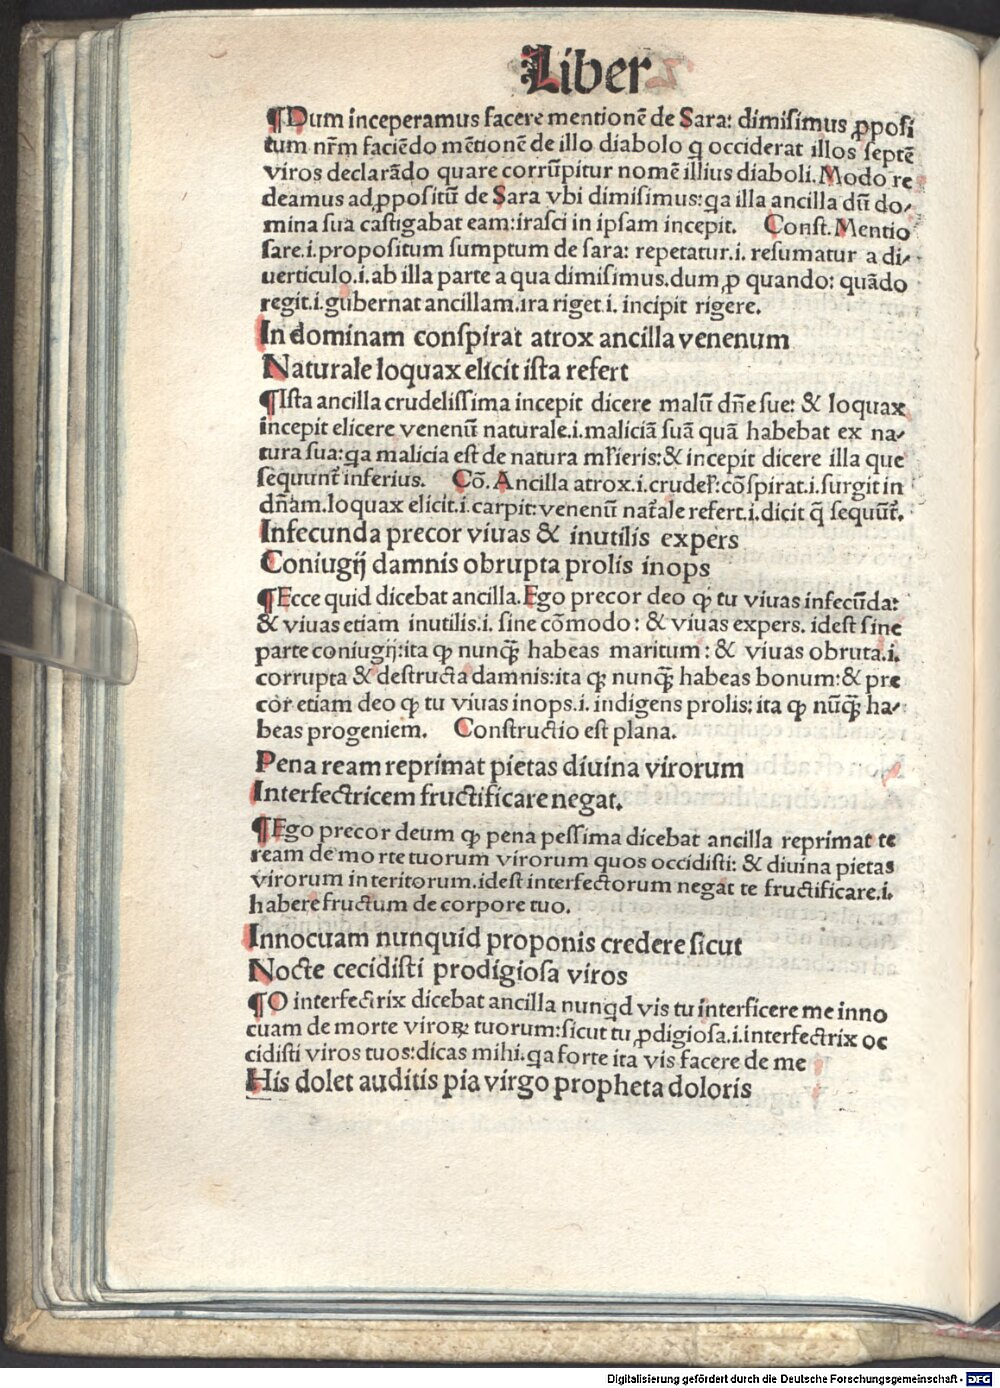 Liber
¶Dum inceperamus facere mentionē de Sara: dimisimus ꝓposi
tum nr̄m faciēdo mētionē de illo diabolo q̄ occiderat illos septē
viros declarādo quare corrūpitur nomē illius diaboli. Modo re
deamus ad ꝓpositū de Sara vbi dimisimus: qa illa ancilla dū do⸗
mina sua castigabat eam: irasci in ipsam incepit. Const. Mentio
sare .i. propositum sumptum de sara: repetatur .i. resumatur a di⸗
uerticulo .i. ab illa parte a qua dimisimus. dum ꝓ quando: quādo
regit .i. gubernat ancillam. ira riget .i. incipit rigere.
In dominam conspirat atrox ancilla venenum
Naturale loquax elicit ista refert
¶Ista ancilla crudelissima incepit dicere malū dn̄e sue: & loquax
incepit elicere venenū naturale .i. maliciā suā quā habebat ex na⸗
tura sua: qa malicia est de natura mr̄ieris: & incepit dicere illa que
sequunt᷑ inferius. Cō. Ancilla atrox .i. crudel᷑: cōspirat .i. surgit in
dn̄am. loquax elicit .i. carpit: venenū nat᷑ale refert .i. dicit q̄ sequūt᷑.
Infecunda precor viuas & inutilis expers
Coniugij damnis obrupta prolis inops
¶Ecce quid dicebat ancilla. Ego precor deo ꝙ tu viuas infecūda:
& viuas etiam inutilis .i. sine cōmodo: & viuas expers. idest sine
parte coniugij: ita ꝙ nunꝗ̄ habeas maritum: & viuas obruta .i.
corrupta & destructa damnis: ita ꝙ nunꝗ̄ habeas bonum: & pre
cor etiam deo ꝙ tu viuas inops .i. indigens prolis: ita ꝙ nūꝗ̄ ha⸗
beas progeniem. Constructio est plana.
Pena ream reprimat pietas diuina virorum
Interfectricem fructificare negat.
¶Ego precor deum ꝙ pena pessima dicebat ancilla reprimat te
ream de morte tuorum virorum quos occidisti: & diuina pietas
virorum interitorum. idest interfectorum negat te fructificare .i.
habere fructum de corpore tuo.
Innocuam nunquid proponis credere sicut
Nocte cecidisti prodigiosa viros
¶O interfectrix dicebat ancilla nunqd vis tu interficere me inno
cuam de morte viroꝝ tuorum: sicut tu ꝓdigiosa .i. interfectrix oc
cidisti viros tuos: dicas mihi. qa forte ita vis facere de me
His dolet auditis pia virgo propheta doloris
Digitalisierung gefördert durch die Deutsche Forschungsgemeinschaft - DFG